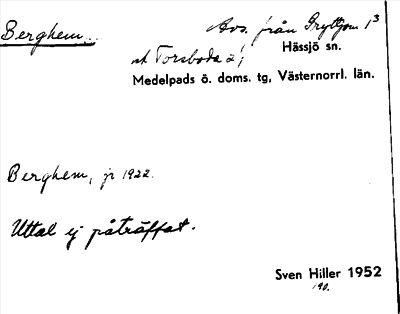 Berghem
Avs. från Gryttjom 1³
Hässjö sn.
o. Torsboda 2¹;
Medelpads ö. doms. tg, Västernorrl. län.
Berghem, jr 1922.
Uttal ej påträffat.
Sven Hiller 1952
190.